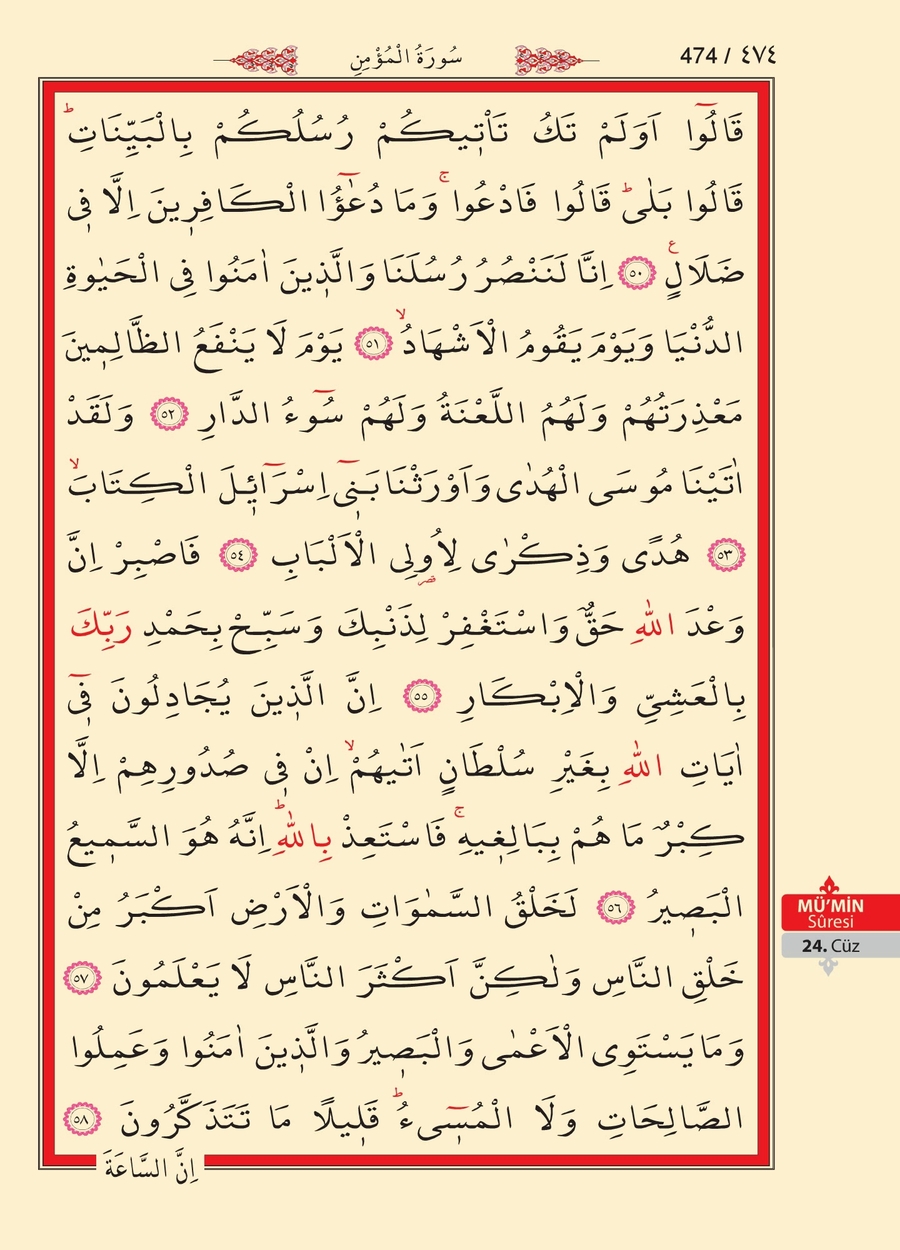 474 / ٤٧٤
سُورَةُ الْمُؤْمِنِ
قَالُٓوا اَوَلَمْ تَكُ تَأْت۪يكُمْ رُسُلُكُمْ بِالْبَيِّنَاتِۜ
قَالُوا بَلٰىۜ قَالُوا فَادْعُواۚ وَمَا دُعٰٓؤُا الْكَافِر۪ينَ اِلَّا ف۪ي
ضَلَالٍ۟ ﴿٥٠﴾ اِنَّا لَنَنْصُرُ رُسُلَنَا وَالَّذ۪ينَ اٰمَنُوا فِي الْحَيٰوةِ
الدُّنْيَا وَيَوْمَ يَقُومُ الْاَشْهَادُۙ ﴿٥١﴾ يَوْمَ لَا يَنْفَعُ الظَّالِم۪ينَ
مَعْذِرَتُهُمْ وَلَهُمُ اللَّعْنَةُ وَلَهُمْ سُٓوءُ الدَّارِ ﴿٥٢﴾ وَلَقَدْ
اٰتَيْنَا مُوسَى الْهُدٰى وَاَوْرَثْنَا بَن۪ٓي اِسْرَٓائ۪لَ الْكِتَابَۙ
﴿٥٣﴾ هُدًى وَذِكْرٰى لِاُولِي الْاَلْبَابِ ﴿٥٤﴾ فَاصْبِرْ اِنَّ
وَعْدَ اللّٰهِ حَقٌّ وَاسْتَغْفِرْ لِذَنْبِكَ وَسَبِّحْ بِحَمْدِ رَبِّكَ
بِالْعَشِيِّ وَالْاِبْكَارِ ﴿٥٥﴾ اِنَّ الَّذ۪ينَ يُجَادِلُونَ ف۪ٓي
اٰيَاتِ اللّٰهِ بِغَيْرِ سُلْطَانٍ اَتٰيهُمْۙ اِنْ ف۪ي صُدُورِهِمْ اِلَّا
كِبْرٌ مَا هُمْ بِبَالِغ۪يهِۚ فَاسْتَعِذْ بِاللّٰهِۜ اِنَّهُ هُوَ السَّم۪يعُ
الْبَص۪يرُ ﴿٥٦﴾ لَخَلْقُ السَّمٰوَاتِ وَالْاَرْضِ اَكْبَرُ مِنْ
خَلْقِ النَّاسِ وَلٰكِنَّ اَكْثَرَ النَّاسِ لَا يَعْلَمُونَ ﴿٥٧﴾
وَمَا يَسْتَوِي الْاَعْمٰى وَالْبَص۪يرُ وَالَّذ۪ينَ اٰمَنُوا وَعَمِلُوا
الصَّالِحَاتِ وَلَا الْمُس۪ٓيءُۜ قَل۪يلًا مَا تَتَذَكَّرُونَ ﴿٥٨﴾
اِنَّ السَّاعَةَ
MÜ’MİN
Sûresi
24. Cüz